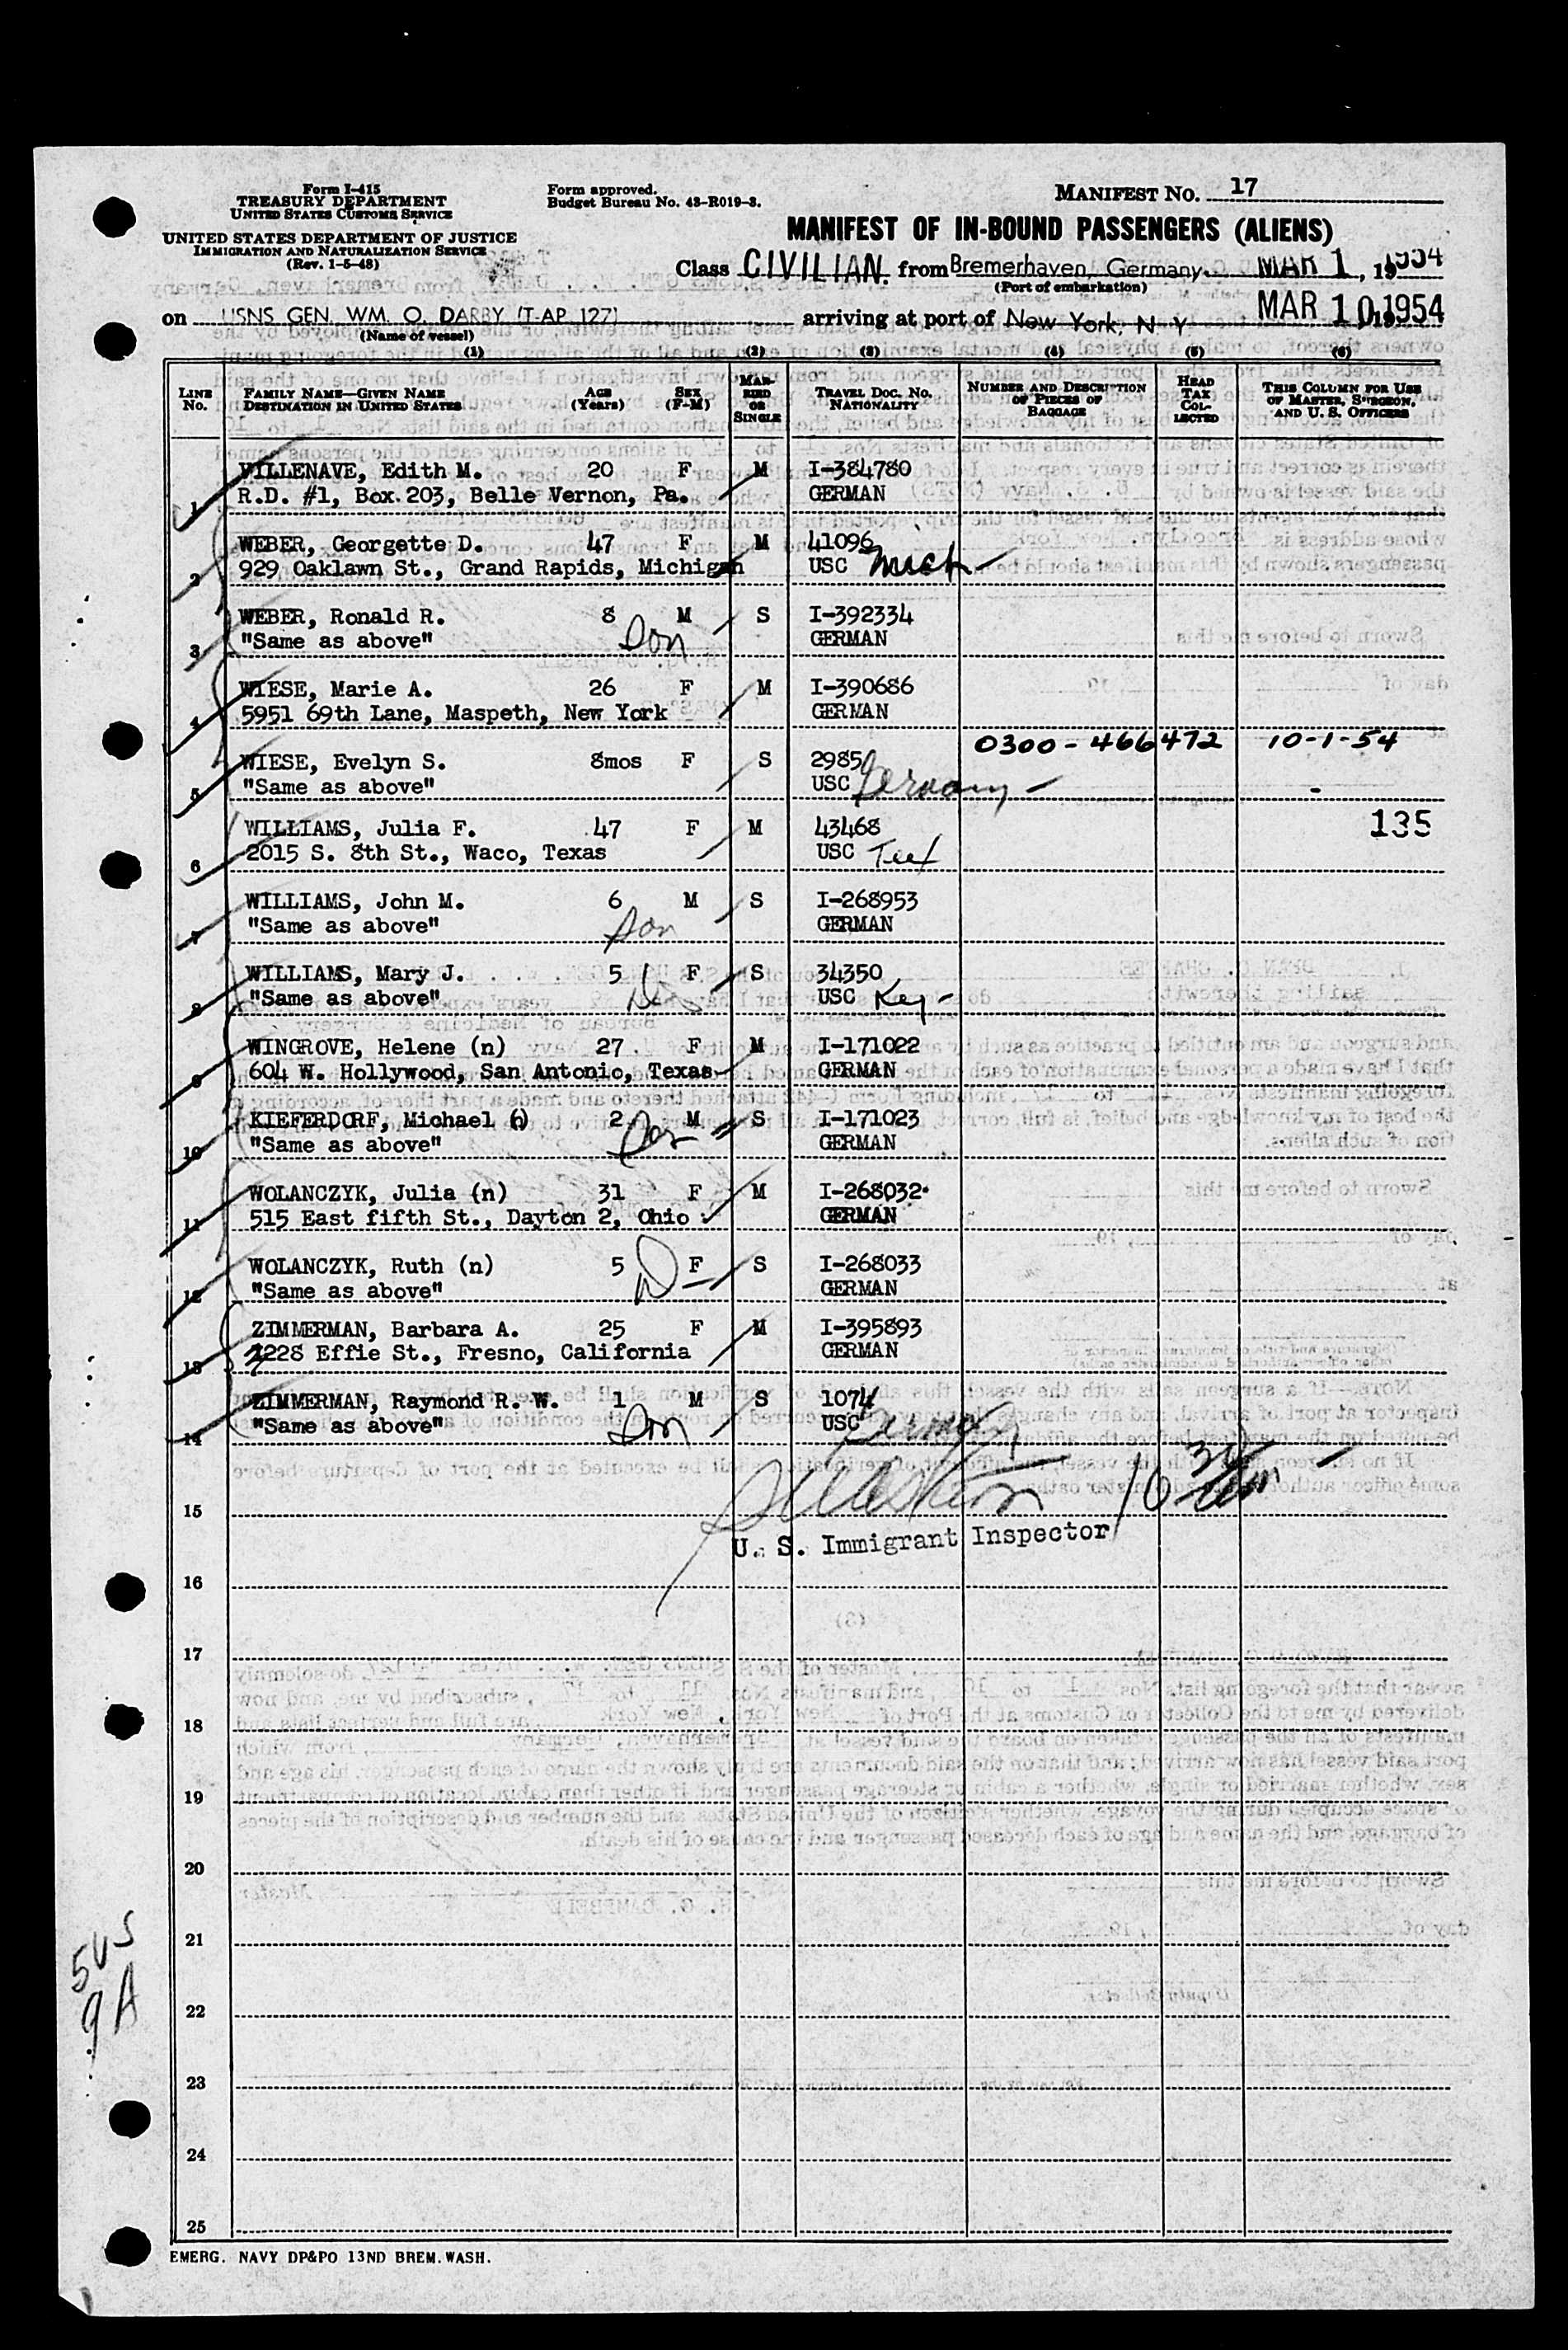 Form I-415
TREASURY DEPARTMENT
UNITED STATES CUSTOMS SERVICE
UNITED STATES DEPARTMENT OF JUSTICE
IMMIGRATION AND NATURALIZATION SERVICE
(Rev. 1-5-48)
Form approved.
Budget Bureau No. 43-R019-3.
MANIFEST No. 17
MANIFEST OF IN-BOUND PASSENGERS (ALIENS)
Class CIVILIAN. from Bremerhaven, Germany. MAR 1, 1954
(Port of embarkation)
on USNS GEN. WM. O. DARBY (T-AP 127) arriving at port of New York, N Y MAR 10 1954
(Name of vessel)
(1) (2) (3) (4) (5) (6)
LINE No. FAMILY NAME—GIVEN NAME DESTINATION IN UNITED STATES AGE (Years) SEX (F-M) MARRIED OR SINGLE TRAVEL DOC. NO. NATIONALITY NUMBER AND DESCRIPTION OF PIECES OF BAGGAGE HEAD TAX COLLECTED THIS COLUMN FOR USE OF MASTER, SURGEON, AND U. S. OFFICERS
VILLENAVE, Edith M. 20 F M I-384780
1 R.D. #1, Box 203, Belle Vernon, Pa. GERMAN
WEBER, Georgette D. 47 F M 41096
2 929 Oaklawn St., Grand Rapids, Michigan USC Mich
WEBER, Ronald R. 8 M S I-392334
3 "Same as above" Son GERMAN
WIESE, Marie A. 26 F M I-390686
4 5951 69th Lane, Maspeth, New York GERMAN
0300-466472 10-1-54
WIESE, Evelyn S. 8mos F S 2985
5 "Same as above" USC Germany
WILLIAMS, Julia F. 47 F M 43468 135
6 2015 S. 8th St., Waco, Texas USC Tex
WILLIAMS, John M. 6 M S I-268953
7 "Same as above" Son GERMAN
WILLIAMS, Mary J. 5 F S 34350
8 "Same as above" D USC
WINGROVE, Helene (n) 27 F M I-171022
9 604 W. Hollywood, San Antonio, Texas GERMAN
KIEFERDORF, Michael (n) 2 M S I-171023
10 "Same as above" Son GERMAN
WOLANCZYK, Julia (n) 31 F M I-268032
11 515 East fifth St., Dayton 2, Ohio GERMAN
WOLANCZYK, Ruth (n) 5 F S I-268033
12 "Same as above" D GERMAN
ZIMMERMAN, Barbara A. 25 F M I-395893
13 1228 Effie St., Fresno, California GERMAN
ZIMMERMAN, Raymond R. W. 1 M S 1074
14 "Same as above" Son USC Germany
15
U. S. Immigrant Inspector
16
17
18
19
20
21
5US
9A
22
23
24
25
EMERG. NAVY DP&PO 13ND BREM. WASH.